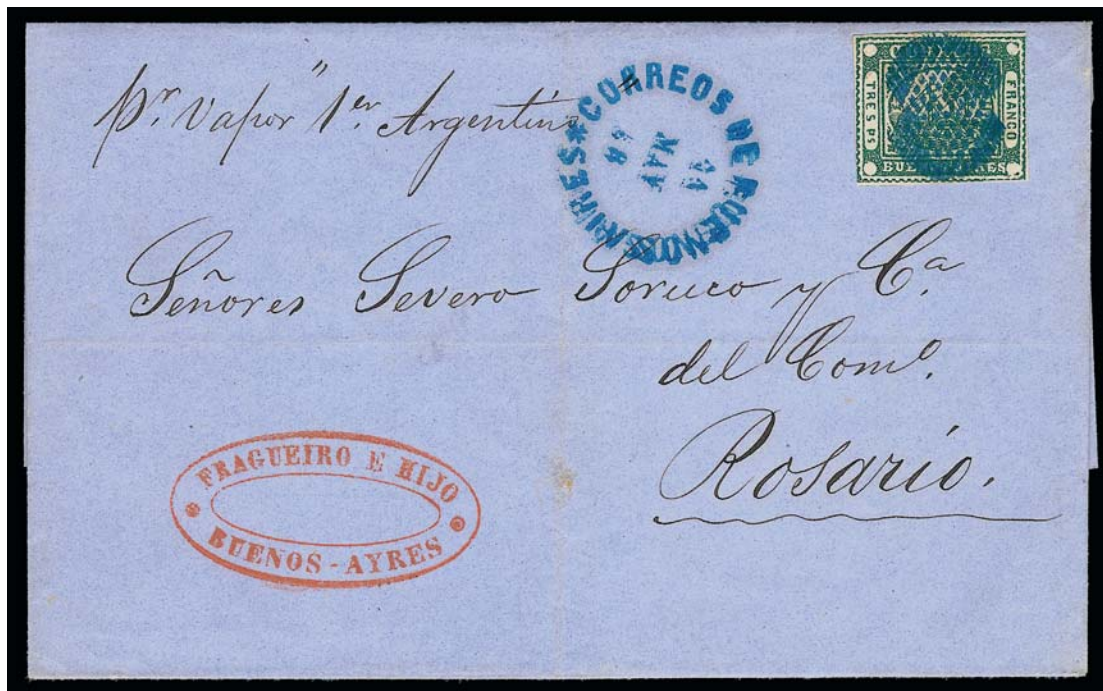 pr. Vapor "1er. Argentino"
CORREOS DE BUENOS AIRES
MAY
TRES PS
FRANCO
BUENOS AIRES
Señores Severo Soruco y Ca.
del Como.
Rosario.
FRAGUEIRO E HIJO
BUENOS-AYRES